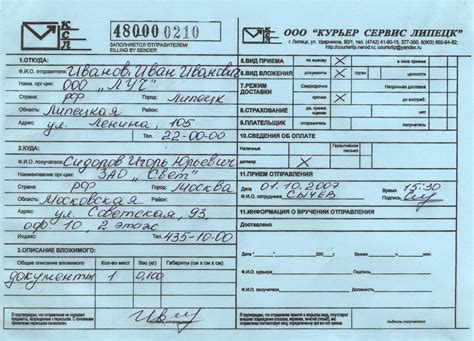 КСЛ
48000 0210
ЗАПОЛНЯЕТСЯ ОТПРАВИТЕЛЕМ
BILLING BY SENDER
ООО "КУРЬЕР СЕРВИС ЛИПЕЦК"
г. Липецк, ул. Ударников, 90/1, тел. (4742) 41-90-15, 377-350, 8(903) 865-94-62;
1.ОТКУДА:
Ф.И.О. отправителя: Иванов Иван Иванович
Наим. орг-ции: ООО "ЛУЧ"
Страна: РФ Город: Липецк
Область: Липецкая
Адрес: ул. Ленина, 105
Тел. 22-00-00
2.КУДА:
Ф.И.О. получателя: Сидоров Игорь Юрьевич
Наименование орг-ции: ЗАО "Свет"
Страна: РФ Город: Москва
Область: Московская
Адрес: ул. Советская, 93,
оф 10, 2 этаж
Тел. 435-10-00
3.ОПИСАНИЕ ВЛОЖИМОГО:
Общее описание вложимого Кол-во мест Вес (кг) Габариты (см x см x см)
документы 1 0,100
6.ВИД ПРИЕМА
8.ВИД ВЛОЖЕНИЯ документы X
7.РЕЖИМ ДОСТАВКИ Срочно
8.СТРАХОВАНИЕ
9.ПЛАТЕЛЬЩИК отправитель получатель
10.СВЕДЕНИЕ ОБ ОПЛАТЕ
Наличными Гарантийное письмо
договор X
11.ПРИЕМ ОТПРАВЛЕНИЯ
Дата 01.10.2007 Время 15:30
Ф.И.О сотрудника СЫЧЕВ Подпись
11.ИНФОРМАЦИЯ О ВРУЧЕНИИ ОТПРАВЛЕНИЯ
Доставлено:
Дата " " 200 г. Время
Ф.И.О. курьера Подпись
Ф.И.О. получателя
Должность Подпись